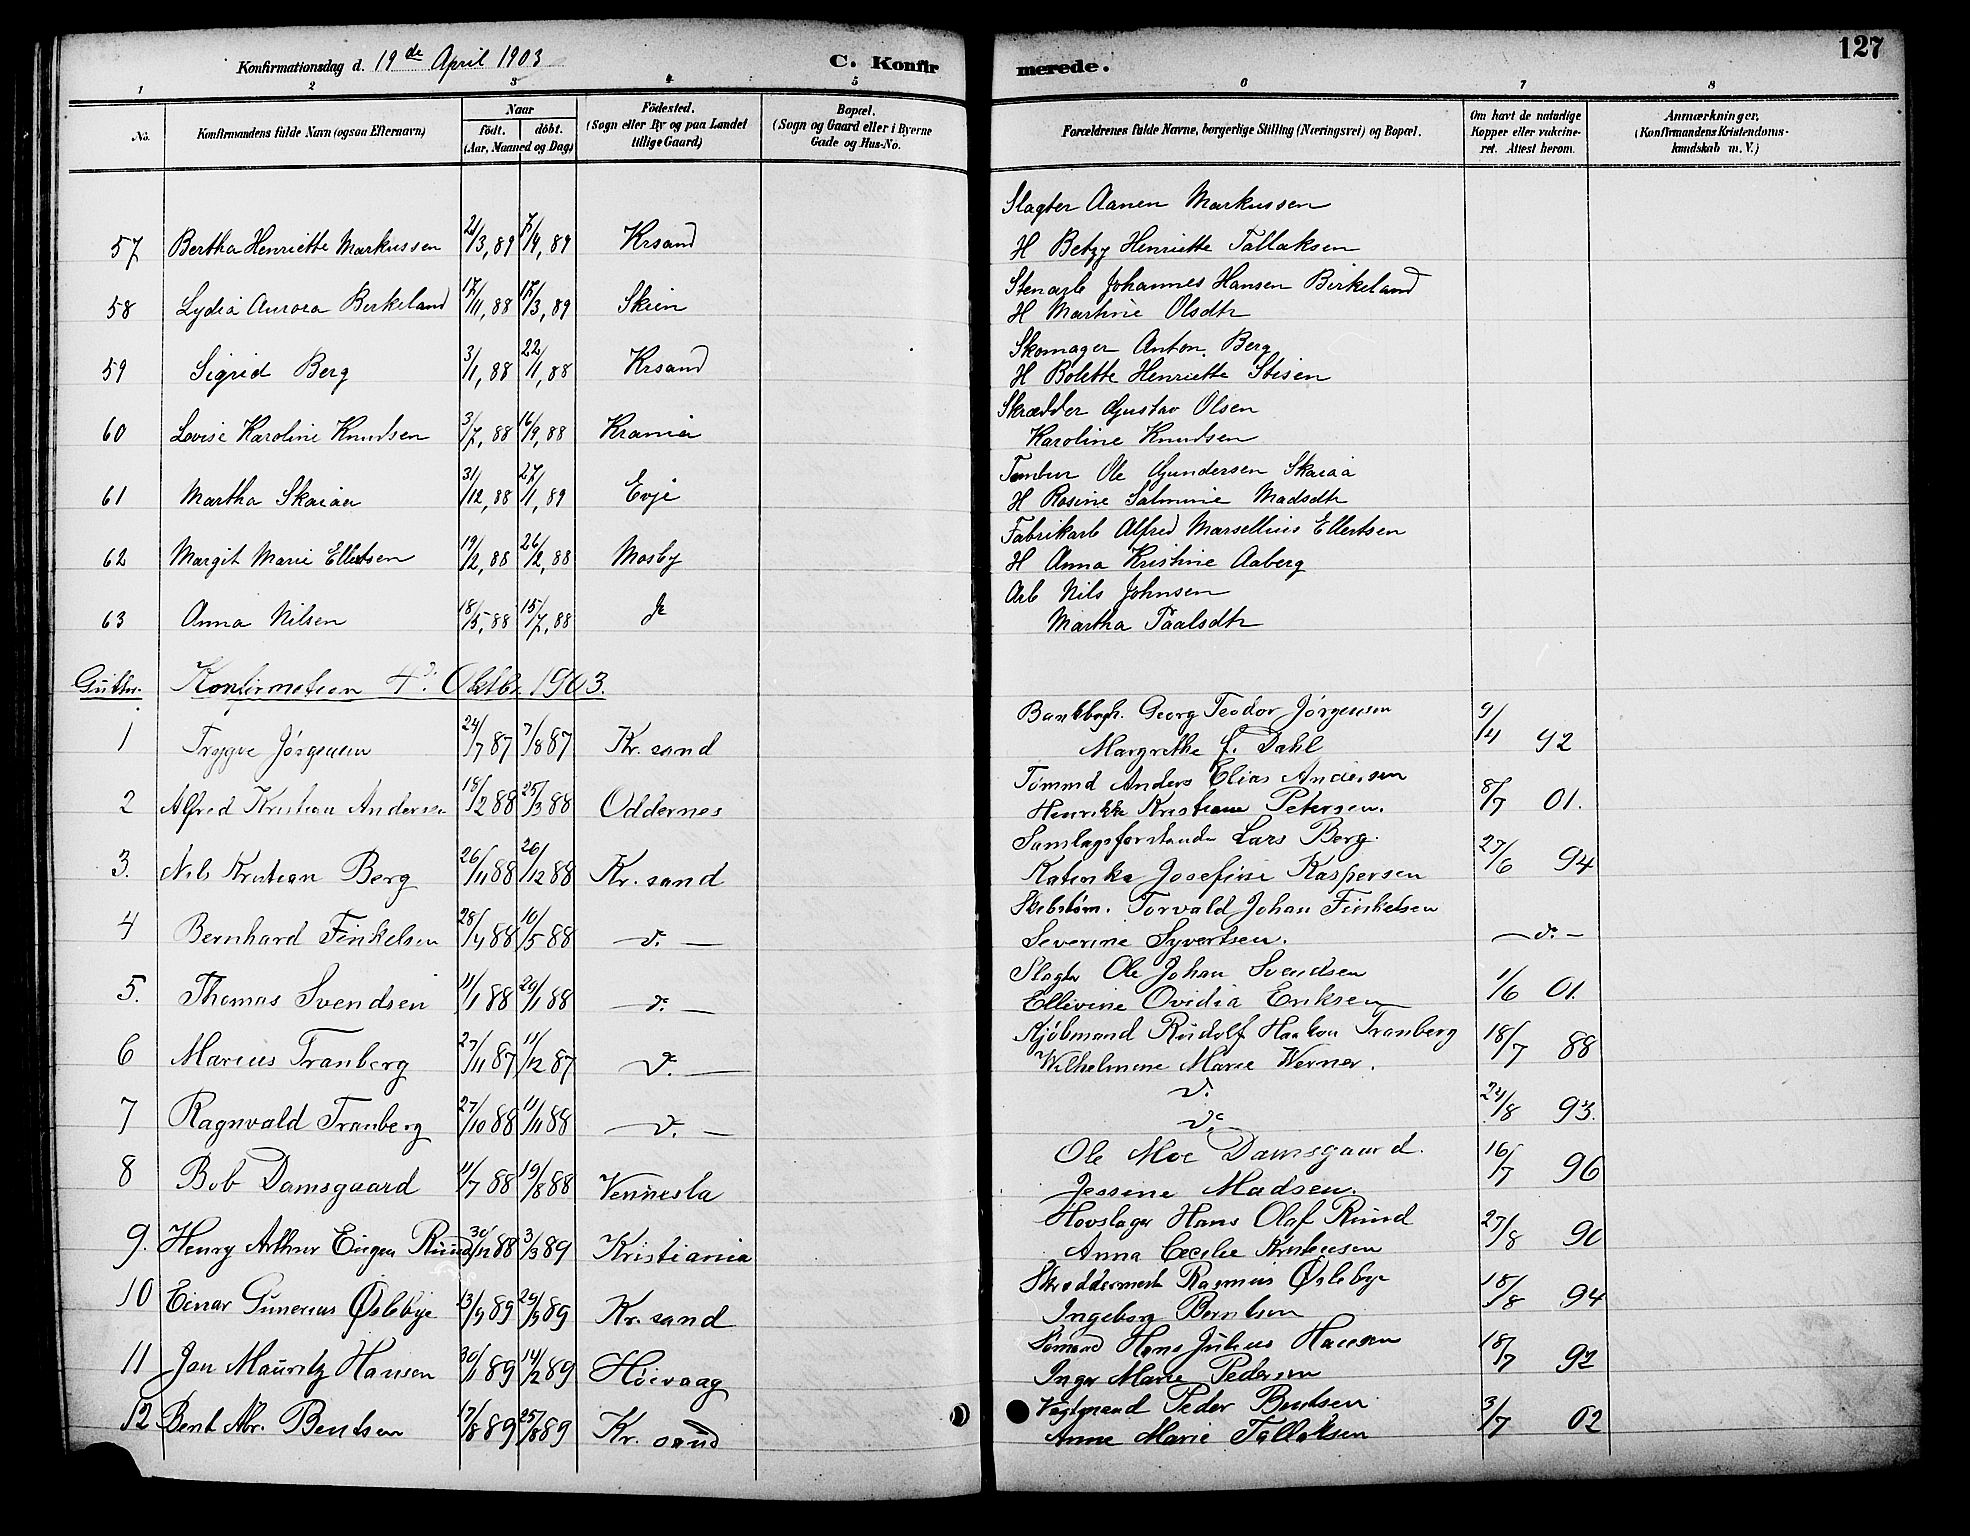 127
Konfirmationsdag d. 19de April 1903
C. Konfirmerede.
1 2 3 4 5 6 7 8
No.
Konfirmandens fulde Navn (ogsaa Efternavn)
Naar
födt. döbt.
(Aar, Maaned og Dag)
Födested.
(Sogn eller By og paa Landet
tillige Gaard)
Bopæl.
(Sogn og Gaard eller i Byerne
Gade og Hus-No.
Forældrenes fulde Navne, borgerlige Stilling (Næringsvei) og Bopæl.
Om havt de naturlige
Kopper eller vakcine-
ret. Attest herom.
Anmærkninger.
(Konfirmandens Kristendoms-
kundskab m. V.)
Slagter Aanen Markussen
57 Bertha Henriette Markussen 21/3, 89 7/4, 89 Krsand H Betzy Henriette Tallaksen
Stenarb Johannes Hansen Birkeland
58 Lydia Aurora Birkeland 17/11, 88 17/3, 89 Skien H Martine Olsdtr
Skomager Anton Berg
59 Sigrid Berg 3/1, 88 22/1, 88 Krsand H Bolette Henriette Stisen
Skrædder Gustav Olsen
60 Lovise Karoline Knudsen 3/7, 88 16/9, 88 Krania Karoline Knudsen
Tombur Ole Gundersen Skaiaa
61 Martha Skaiaa 31/12, 88 27/1, 89 Evje H Rosine Salmine Madsdtr
Fabrikarb Alfred Marsellius Ellertsen
62 Margit Marie Ellertsen 19/2, 88 26/2, 88 Mosby H Anna Kristine Aaberg
Arb Nils Johnsen
63 Anna Nilsen 18/5, 88 15/7, 88 Martha Paalsdtr
Gutter. Konfirmation 4d. Oktbr. 1903.
Bankbogh. Georg Teodor Jörgensen
1 Trygve Jörgensen 24/7 87 7/8 87 Kr.sand Margrethe f. Dahl 9/4 92
Tömmd Anders Elias Andersen
2 Alfred Kristian Andersen 19/2 88 25/3 88 Oddernes Henrikke Kristiane Petersen. 8/7 01.
Samlagsforstander Lars Berg.
3. Nils Kristian Berg 26/11 88 26/12 88 Kr.sand Katinka Josefine Kaspersen 27/6 94
Skibstöm. Torvald Johan Finkelsen
4 Bernhard Finkelsen 28/4 88 10/5 88 — d. — Severine Syvertsen. — d. —
Slagter Ole Johan Svendsen
5. Thomas Svendsen 11/1 88 29/1 88 — d. — Ellevine Ovidia Eriksen 1/6 01.
Kjöbmand Rudolf Haakon Tranberg
6 Marius Tranberg 27/11 87 11/12 87 — d. — Wilhelmine Marie Werner. 18/7 88
d.
7 Ragnvald Tranberg 27/10 88 11/11 88 — d. — d. 24/8 93.
Ole Moe Damsgaard.
8 Bob Damsgaard 11/7 88 19/8 88 Vennesla Jessine Madsen. 16/7 96
Hovslager Hans Olaf Ruud
9. Henry Arthur Eugen Ruud 30/12 88 3/3 89 Kristiania Anna Cecilie Kristensen 27/8 90
Skræddermest Rasmus Öslebye
10 Einar Gunerius Öslebye 13/9 89 29/9 89 Kr.sand Ingeborg Berntsen 18/8 94
Sömand Hans Julius Hansen
11 Jon Mauritz Hansen 30/1 89 14/2 89 Höievaag Inger Marie Pedersen 18/7 92
Vægtmand Peder Bentsen
12 Bent Abr. Bentsen 17/8 89 25/8 89 Kr.sand Anne Marie Tallaksen 3/7 02